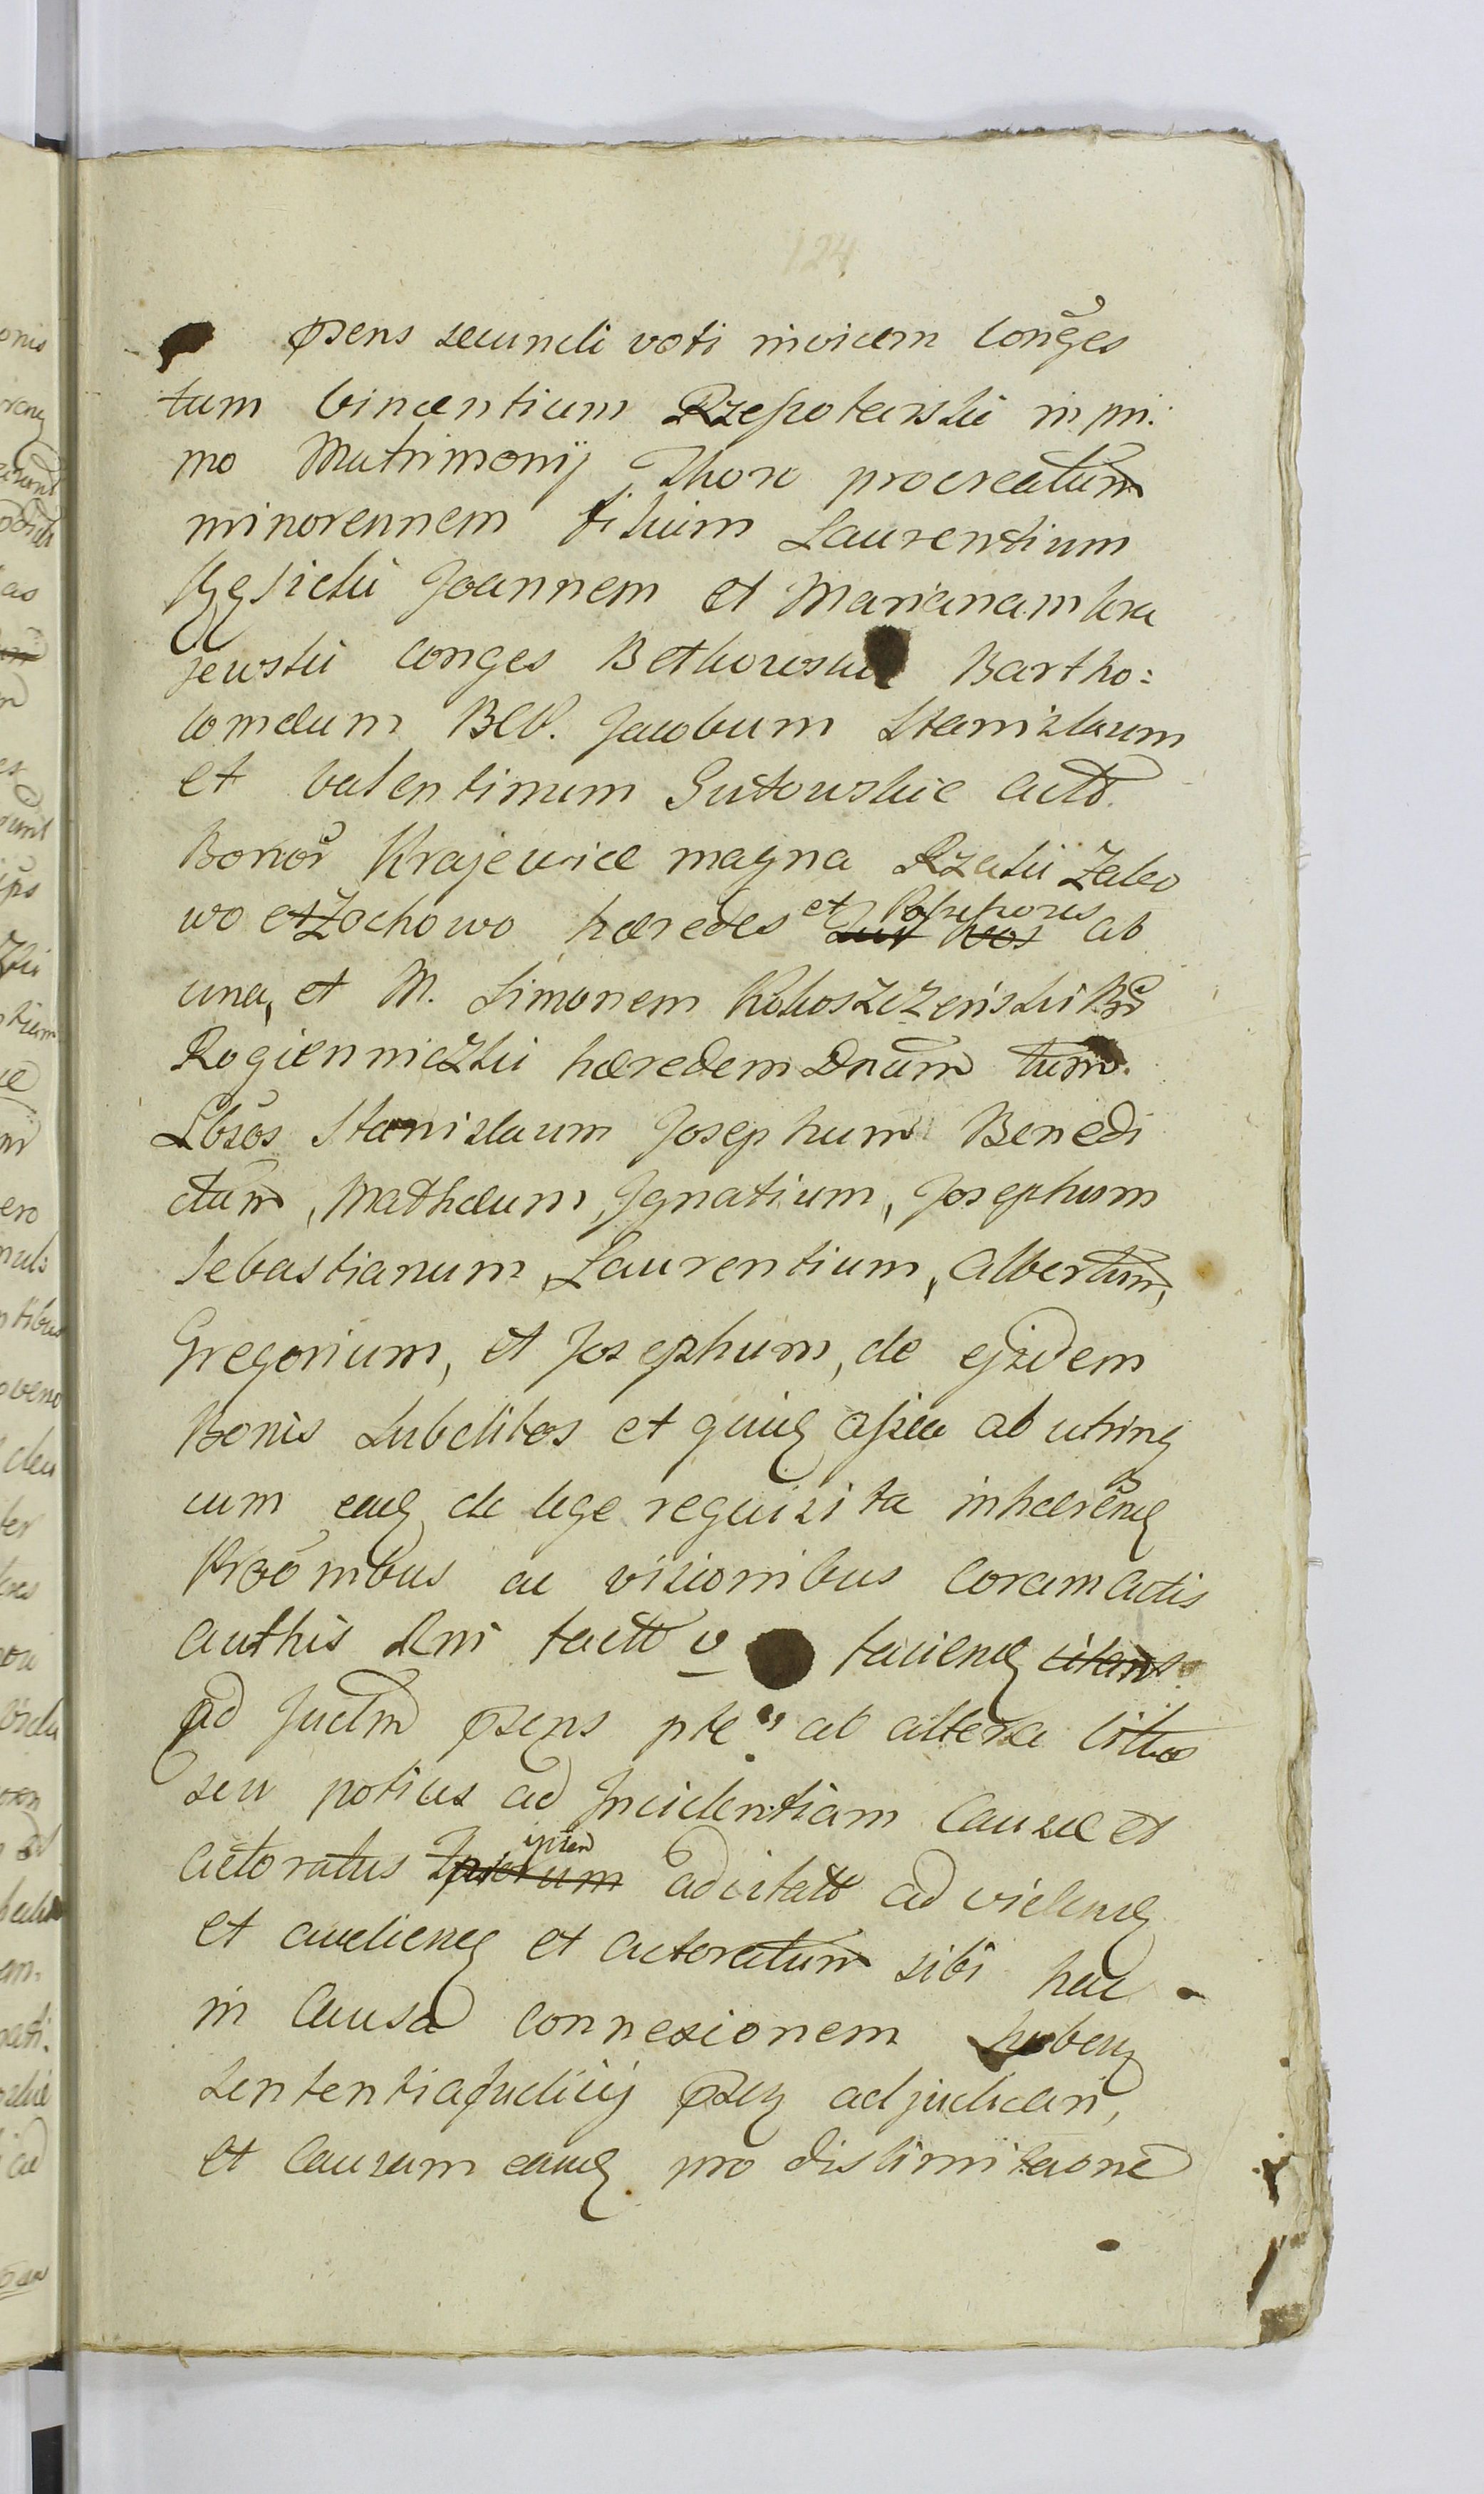 124
psens secundi voti invicem Conges
tum Vincentium Rzepotarski in pri:
mo Matrimonij Thoro procreatum
minorennem filium Laurentium
Kęsicki Joannem et Mariannam Kra
jewski Conges Bethowskie Bartho:
lomæum Jacobum Stanislaum
et Valentinum Gutowskie
Bonor Krajewice magna Rzatki Zaleo
wo et Zochowo hæredes et Possessores ab
una, et M. Simonem Kokoszczeński
Rogienniczki hæredem Dnum tum.
Lbsos Stanislaum Josephum Benedi
ctum, Mathæum, Ignatium, Josephum
Sebastianum, Laurentium, Albertum,
Gregorium, et Josephum, de ejsdem
Bonis Subditos et ab utrinq
cum eaq de lege requisita inhærenq
ac visionibus coram Actis
Authis tacienq citans
ad psens pte ab altera
seu potius ad Incidentiam Causæ et
Actoratus Ipsorum ipsen adcitatt ad videnq
et audienq et Actoratum sibi hac
in Causa connexionem habenq
Sententia Judicij pseq adjudicari,
et Causam eamq pro distimitaone